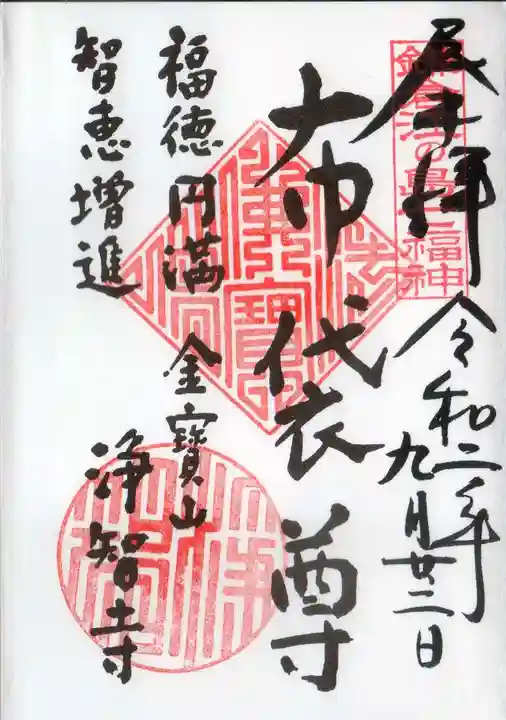 奉拝
令和二年
九月廿二日
鎌倉江の島七福神
布袋尊
福徳円満
智恵増進
金寶山
浄智寺